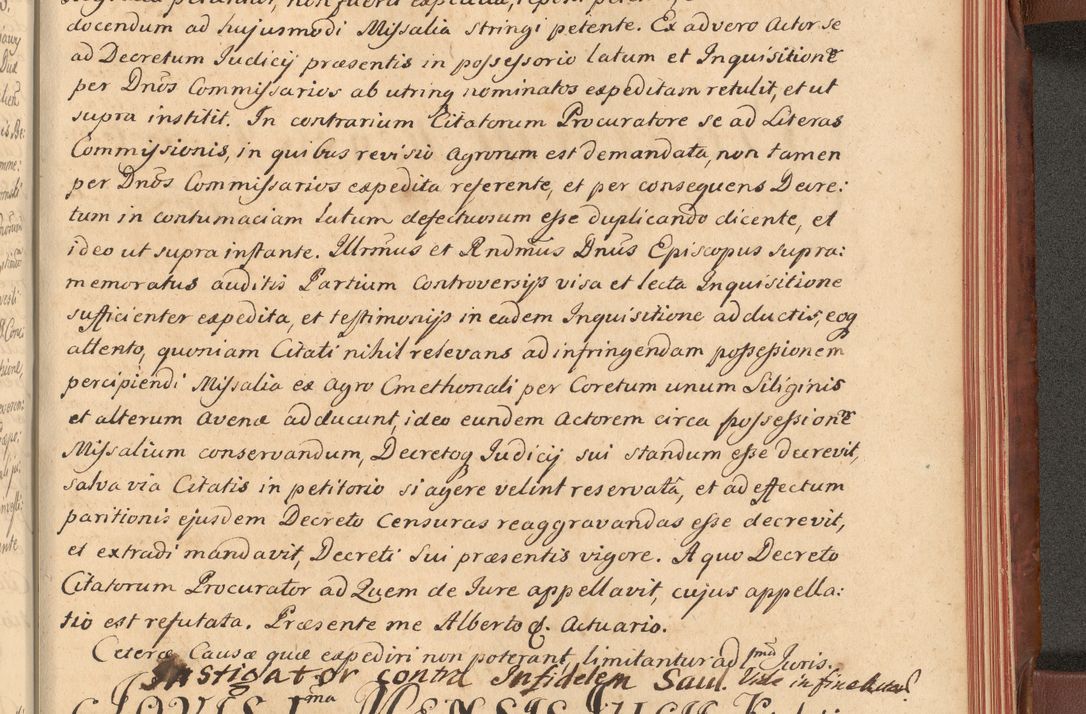 docendum ad hujusmodi Missalia stringi petente. Ex advero Actor se
ad Decretum Iudicij præsentis in possessorio latum et Inquisitionē
per Dnōs Commissarios ab utrinq nominatos expeditam retulit, et ut
supra institit. In contrarium Citatorum Procuratore se ad Literas
Commissionis, in quibus revisio Agrorum est demandata, non tamen
per Dnōs Commissarios expedita referente, et per consequens Decre:
tum in contumaciam latum defectuosum esse duplicando dicente, et
ideo ut supra instante. Illrmus et Rndmus Dnūs Episcopus supra:
memoratus auditis Partium Controversijs visa et lecta Inquisitione
sufficienter expedita, et testimonijs in eadem Inquisitione adductis, eoq
attento, quoniam Citati nihil relevans ad infringendam possessionem
percipiendi Missalia ex Agro Cmethonali per Coretum unum Siliginis
et alterum Avenæ adducunt, ideo eundem Actorem circa possessionē
Missalium conservandum, Decretoq Iudicij sui standum esse decrevit,
salva via Citatis in petitorio si agere velint reservatā, et ad effectum
paritionis ejusdem Decreto Censuras reaggravandas esse decrevit,
et extradi mandavit, Decreti sui præsentis vigore. A quo Decreto
Citatorum Procurator ad Quem de Iure appellavit, cujus appella:
tio est refutata. Præsente me Alberto Actuario.
Ceteræ Causæ quæ expediri non poterant, limitantur ad pmā Iuris.
Instigator contra Infidelem Saul. Vide in fine
IOVIS Ima MENSIS IULII